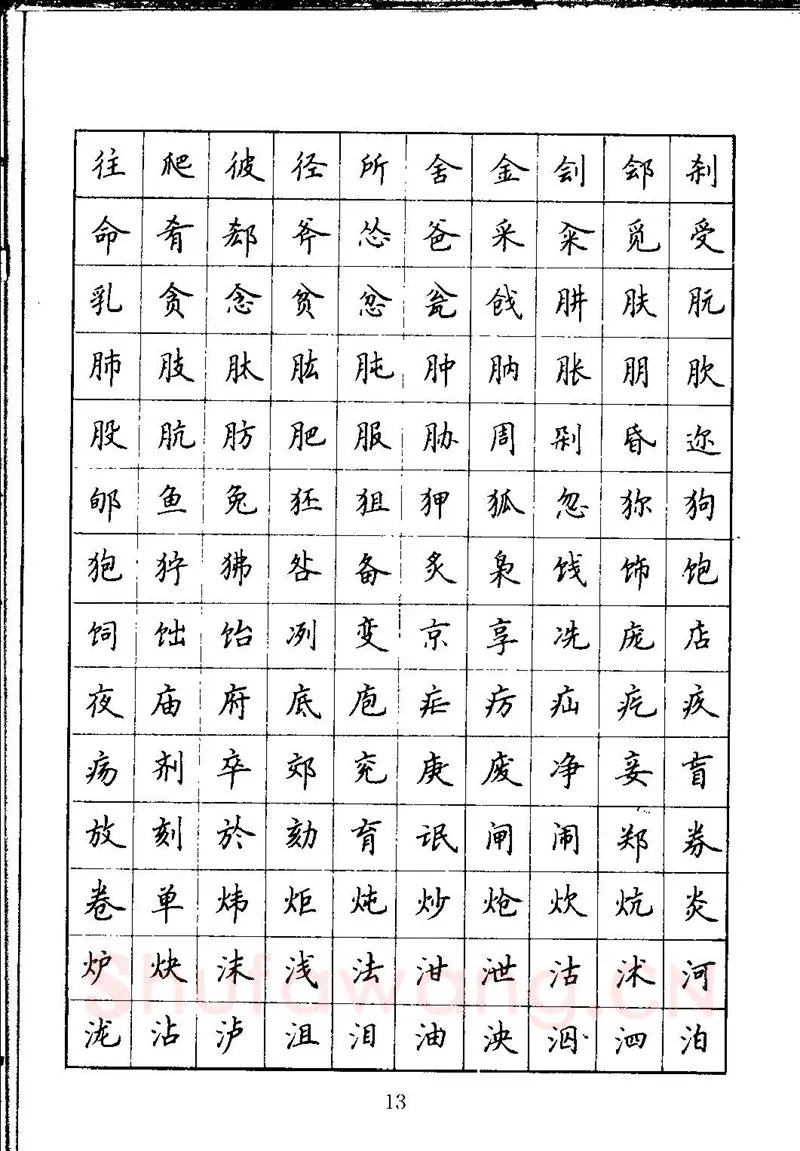 往爬彼径所舍金刽郐刹
命肴郄斧怂爸采籴觅受
乳贪念贫忿瓮戗肼肤朊
肺肢肽肱肫肿肭胀朋肷
股肮肪肥服胁周剁昏迩
郇鱼兔狉狙狎狐忽狝狗
狍狞狒咎备炙枭饯饰饱
饲饳饴冽变京享冼庞店
夜庙府底庖疟疠疝疙疚
疡剂卒郊兖庚废净妾盲
放刻於劾育氓闸闹郑券
卷单炜炬炖炒炝炊炕炎
炉炔沫浅法泔泄沽沭河
泷沾泸沮泪油泱泅泗泊
Shufawang.CN
13